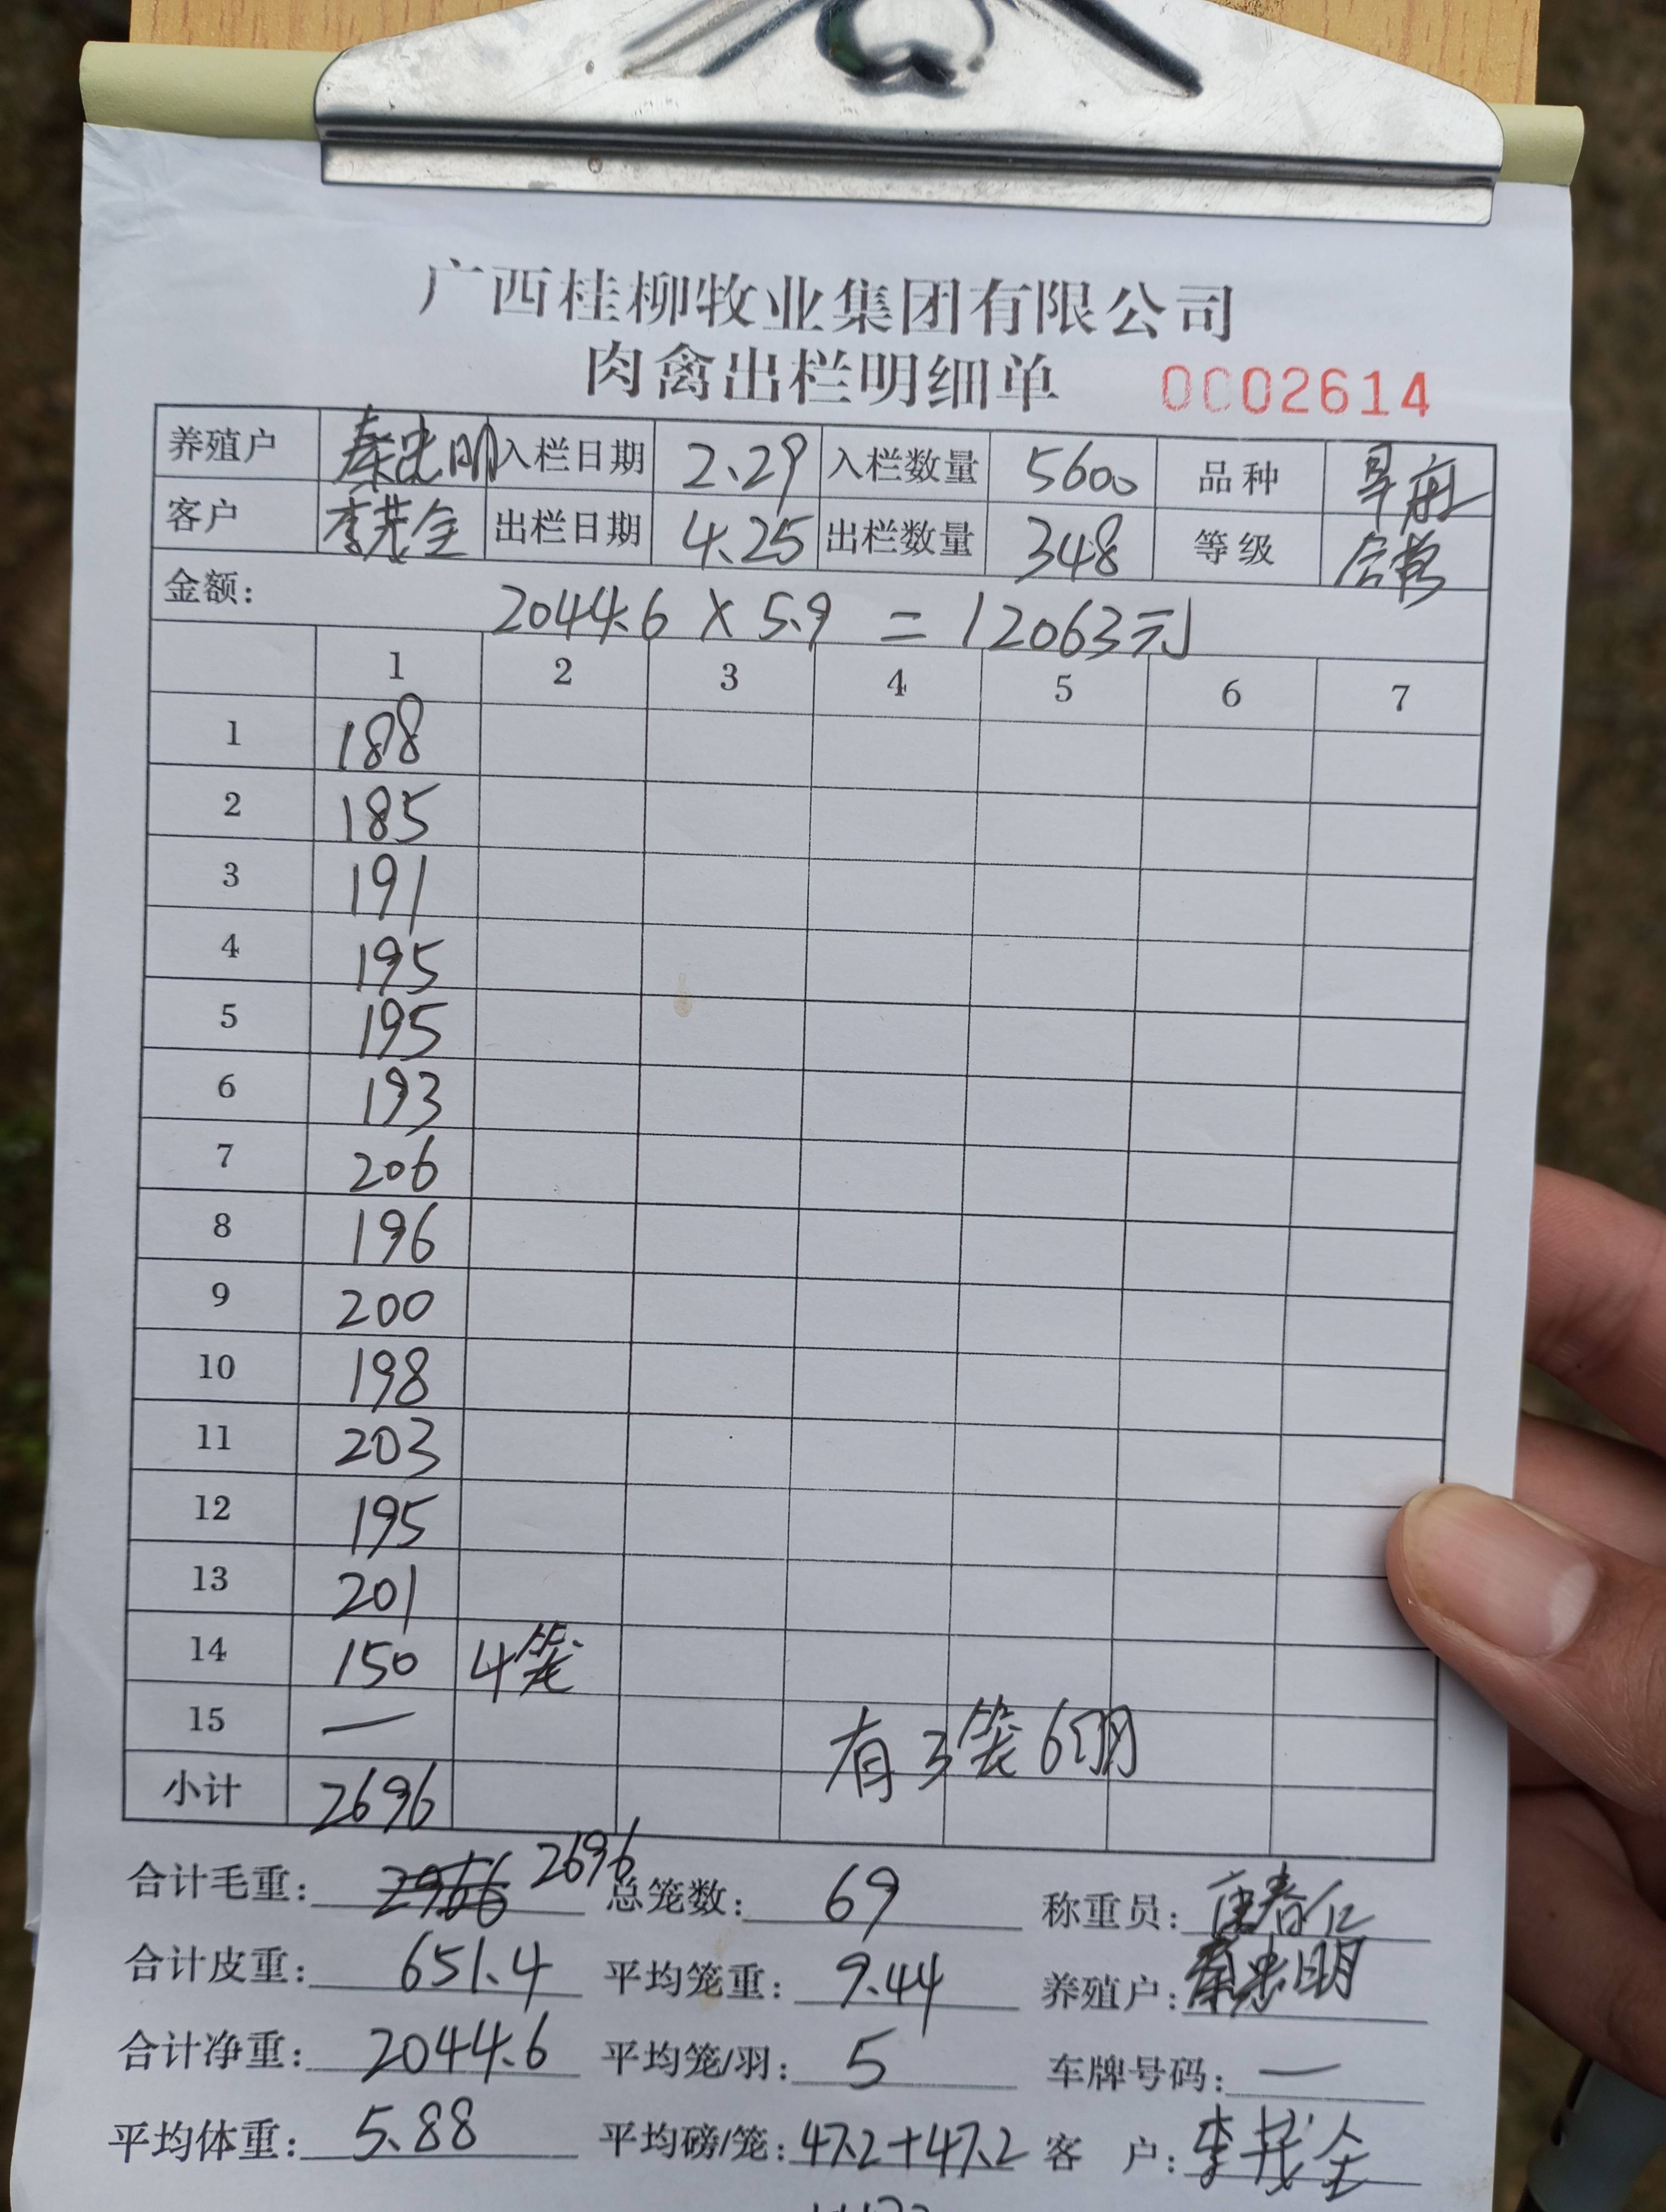 广西桂柳牧业集团有限公司
肉禽出栏明细单 0002614
养殖户 秦忠明 入栏日期 2.29 入栏数量 5600 品种 旱麻
客户 李茂全 出栏日期 4.25 出栏数量 348 等级
金额: 2044.6 × 5.9 = 12063元
1 2 3 4 5 6 7
1 188
2 185
3 191
4 195
5 195
6 193
7 206
8 196
9 200
10 198
11 203
12 195
13 201
14 150 4笼
15 一 有3笼6羽
小计 2696
合计毛重: 2966 2696 总笼数: 69 称重员: 春仁
合计皮重: 651.4 平均笼重: 9.44 养殖户: 秦忠明
合计净重: 2044.6 平均笼/羽: 5 车牌号码: 一
平均体重: 5.88 平均磅/笼: 47.2+47.2 客 户: 李茂全